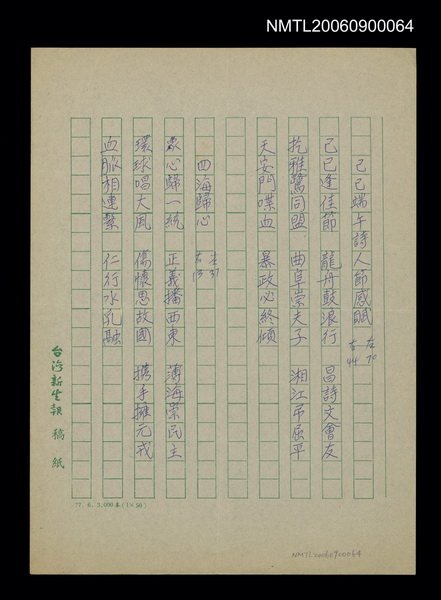 NMTL20060900064
己巳端午詩人節感賦 左70 右44
己巳逢佳節 龍舟鼓浪行 昌詩文會友
扢雅鷺同盟 曲阜崇夫子 湘江吊屈平
天安門喋血 暴政必終傾
四海歸心 左37 右13
眾心歸一統 正義播西東 薄海崇民主
環球唱大風 傷懷思故國 携手擁元戎
血脈相連繫 仁行水乳融
台灣新生報 稿紙
77. 6. 3,000本(1×50)
NMTL20060900064